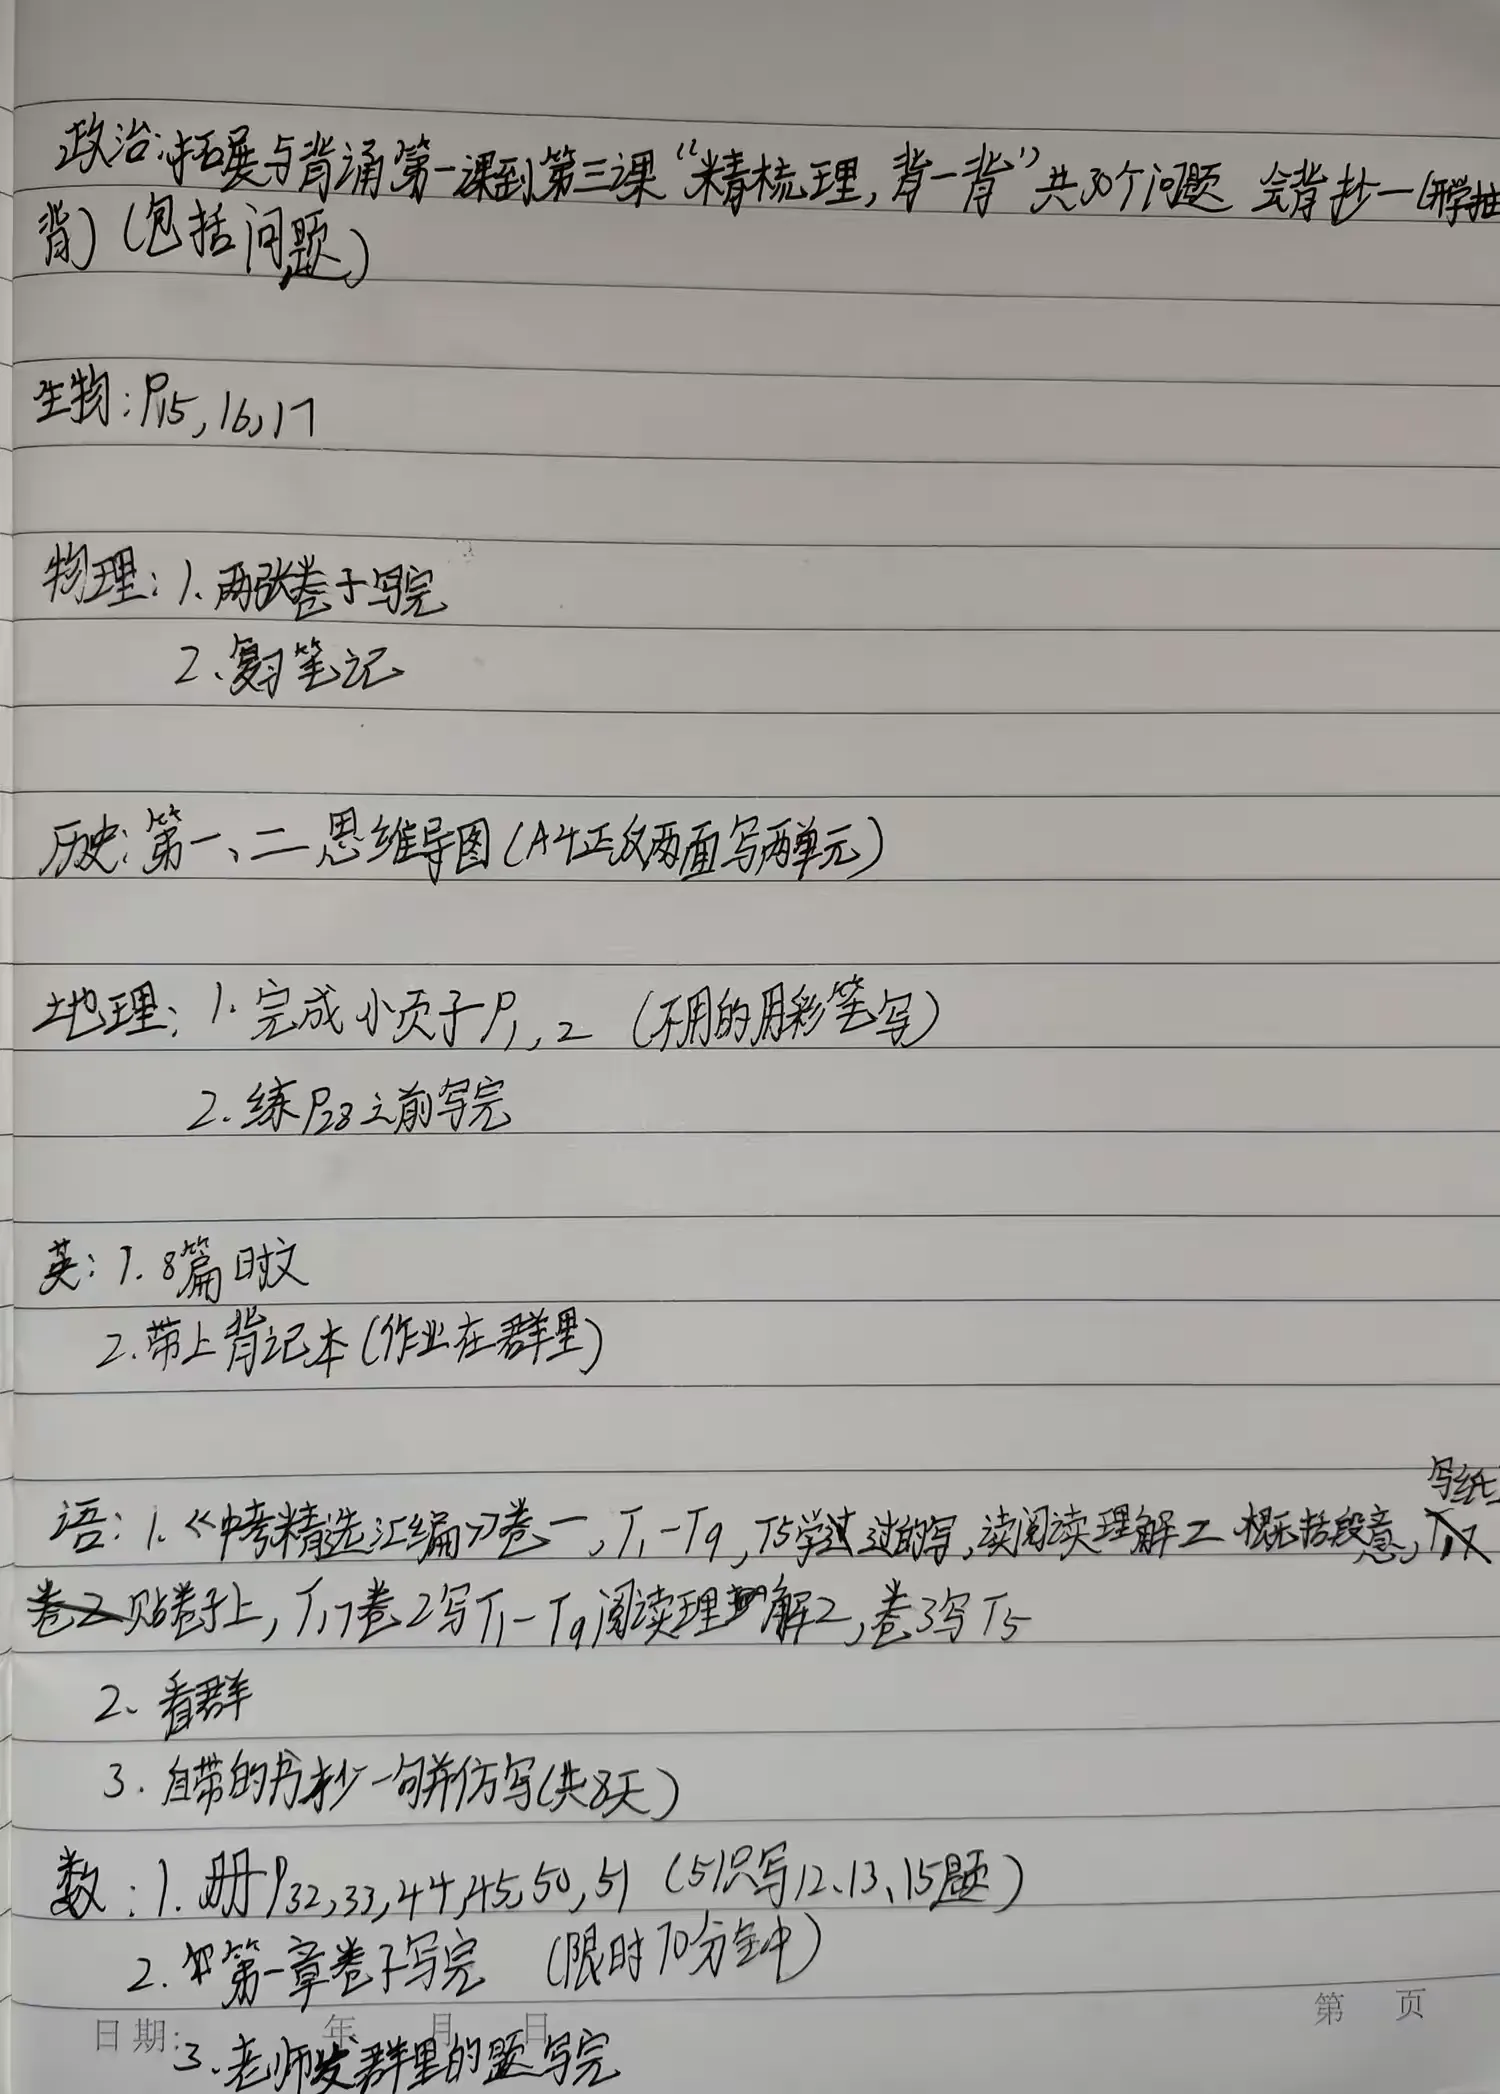 政治:拓展与背诵第一课到第三课“精梳理,背一背”共30个问题 会背抄一(开学抽
背)(包括问题)
生物:P15,16,17
物理:1.两张卷子写完
2.复习笔记
历史:第一、二思维导图(A4正反两面写两单元)
地理:1.完成小页子P1,2 (不用的用彩笔写)
2.练P28之前写完
英:1.8篇时文
2.带上背记本(作业在群里)
写纸上
语:1.《中考精选汇编》卷一,T1-T9,T5学过过的写,读阅读理解二概括段意,T17
卷2贴卷子上,T17卷2写T1-T9阅读理解2,卷3写T5
2、看群
3.自带的书抄一句并仿写(共8天)
数:1.册P32,33,44,45,50,51(51只写12、13、15题)
2.第一章卷子写完 (限时70分钟)
第 页
日期: 年 月 日
3.老师发群里的题写完